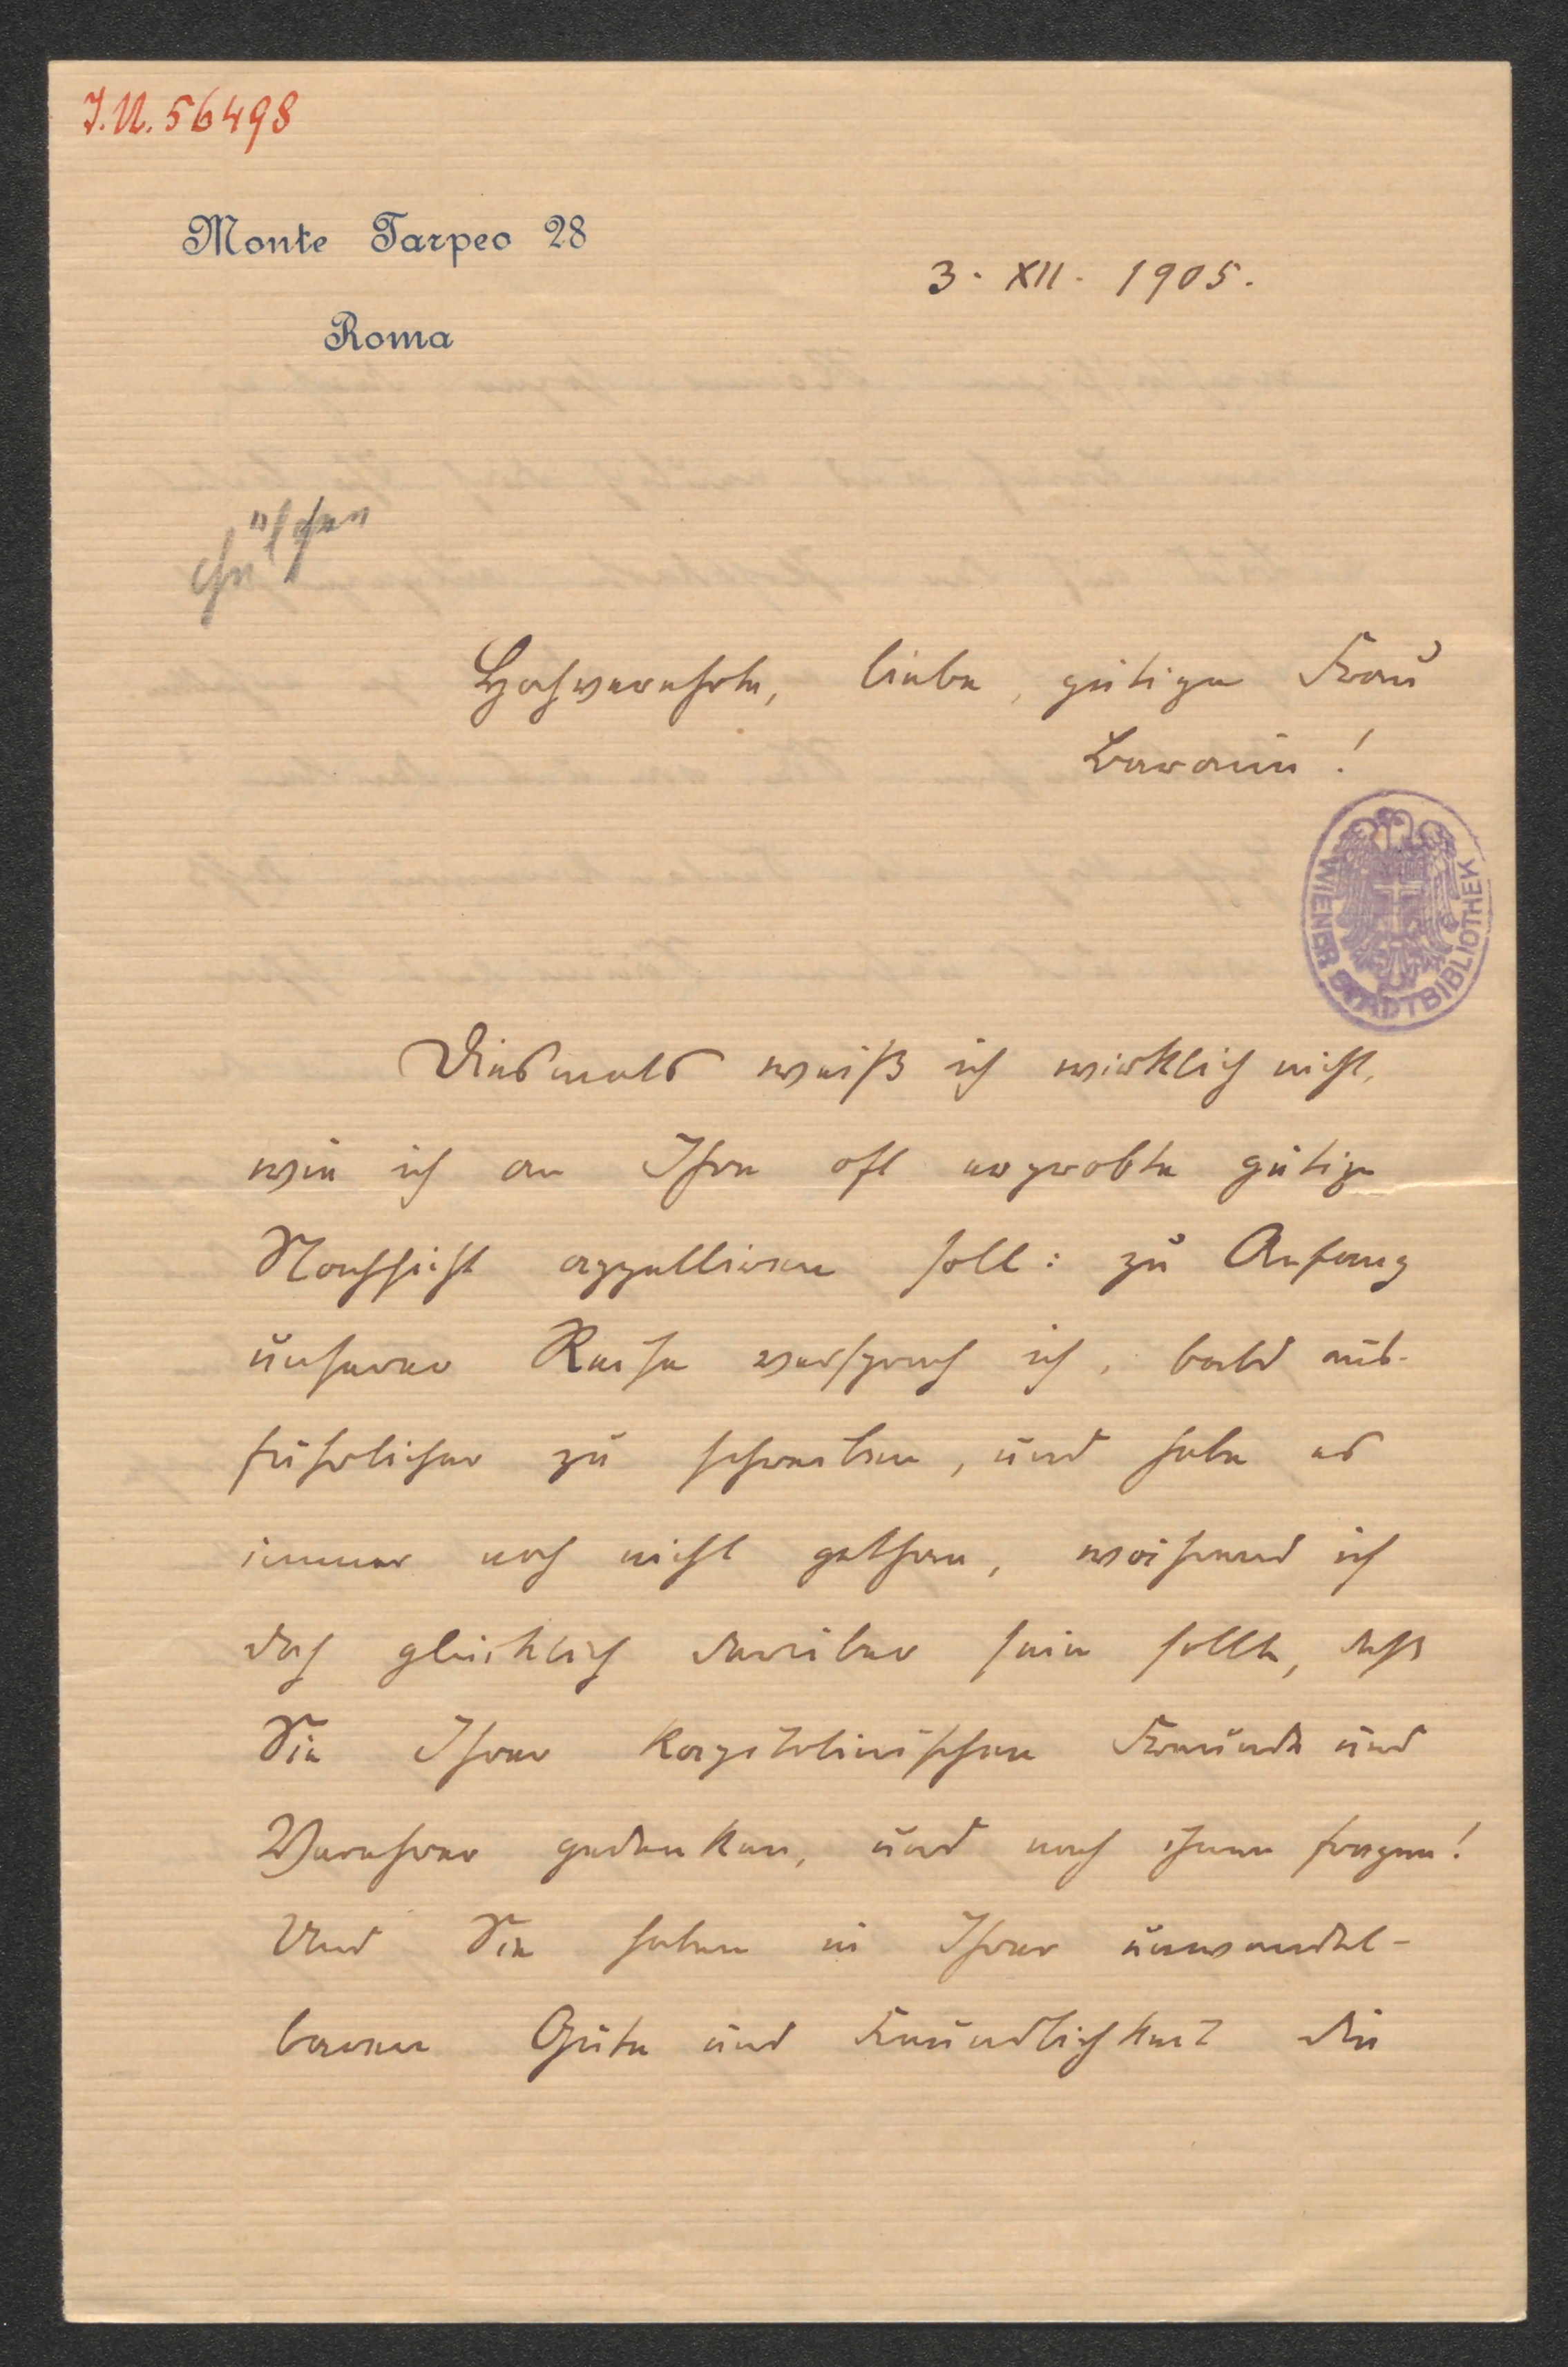 I.N. 56498
Monte Tarpeo 28
3. XII. 1905.
Roma
Hülsen
Hochverehrte, liebe, gütige Frau
Baronin!
WIENER STADTBIBLIOTHEK
Diesmals weiß ich wirklich nicht,
wie ich an Ihre oft erprobte gütige
Nachsicht appelliren soll: zu Anfang
unserer Reise versprach ich, bald aus-
führlicher zu schreiben, und habe es
immer noch nicht gethan, während ich
doch glücklich darüber sein sollte, daß
Sie Ihrer kapitolinischen Freunde und
Verehrer gedenken, und nach ihnen fragen!
Und Sie haben in Ihrer unwandel-
baren Güte und Freundlichkeit die